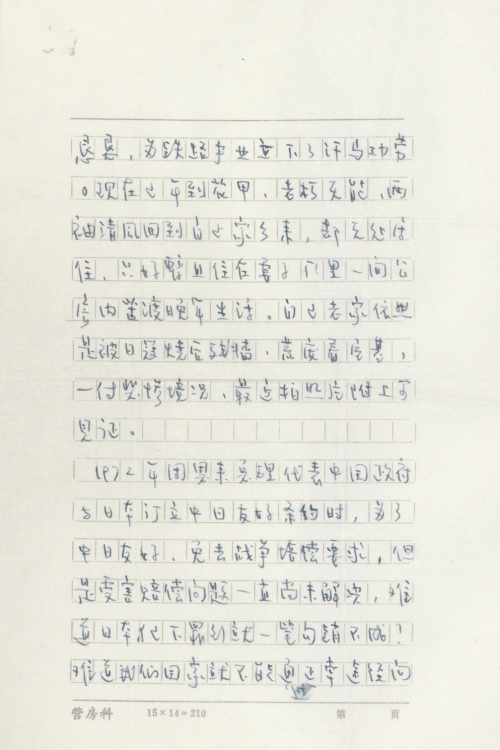 恳恳，为铁路事业立下了许多功劳
。现在已年到花甲，老朽无能，两
袖清风回到自己家乡来，却无处居
住，只好暂且住在妻子厂里一间公
房内苦渡晚年生活。自己老家依然
是被日寇烧后残墙，荒废着屋基，
一付悲惨境况，最近拍照片附上可
见证。
1972年周恩来总理代表中国政府
与日本订立中日友好条约时，为了
中日友好，免去战争赔偿要求，但
是受害赔偿问题一直尚未解决，难
道日本犯下罪行就一笔勾销不成？
难道我们国家就不能通过幸途径向
营房科 15×14=210 第 页